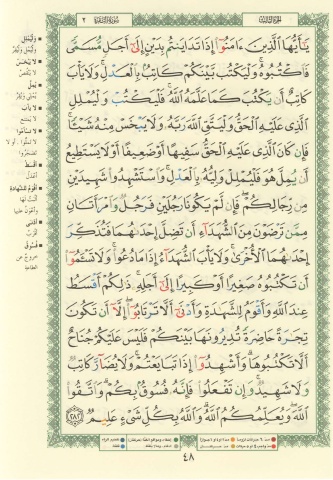 الجزء الثالث
سورة البقرة ٢
يَٰٓأَيُّهَا ٱلَّذِينَ ءَامَنُوٓا۟ إِذَا تَدَايَنتُم بِدَيْنٍ إِلَىٰٓ أَجَلٍ مُّسَمًّى
فَٱكْتُبُوهُ ۚ وَلْيَكْتُب بَّيْنَكُمْ كَاتِبٌۢ بِٱلْعَدْلِ ۚ وَلَا يَأْبَ
كَاتِبٌ أَن يَكْتُبَ كَمَا عَلَّمَهُ ٱللَّهُ ۚ فَلْيَكْتُبْ وَلْيُمْلِلِ
ٱلَّذِى عَلَيْهِ ٱلْحَقُّ وَلْيَتَّقِ ٱللَّهَ رَبَّهُۥ وَلَا يَبْخَسْ مِنْهُ شَيْـًٔا ۚ
فَإِن كَانَ ٱلَّذِى عَلَيْهِ ٱلْحَقُّ سَفِيهًا أَوْ ضَعِيفًا أَوْ لَا يَسْتَطِيعُ
أَن يُمِلَّ هُوَ فَلْيُمْلِلْ وَلِيُّهُۥ بِٱلْعَدْلِ ۚ وَٱسْتَشْهِدُوا۟ شَهِيدَيْنِ
مِن رِّجَالِكُمْ ۖ فَإِن لَّمْ يَكُونَا رَجُلَيْنِ فَرَجُلٌ وَٱمْرَأَتَانِ
مِمَّن تَرْضَوْنَ مِنَ ٱلشُّهَدَآءِ أَن تَضِلَّ إِحْدَىٰهُمَا فَتُذَكِّرَ
إِحْدَىٰهُمَا ٱلْأُخْرَىٰ ۚ وَلَا يَأْبَ ٱلشُّهَدَآءُ إِذَا مَا دُعُوا۟ ۚ وَلَا تَسْـَٔمُوٓا۟
أَن تَكْتُبُوهُ صَغِيرًا أَوْ كَبِيرًا إِلَىٰٓ أَجَلِهِۦ ۚ ذَٰلِكُمْ أَقْسَطُ
عِندَ ٱللَّهِ وَأَقْوَمُ لِلشَّهَٰدَةِ وَأَدْنَىٰٓ أَلَّا تَرْتَابُوٓا۟ ۖ إِلَّآ أَن تَكُونَ
تِجَٰرَةً حَاضِرَةً تُدِيرُونَهَا بَيْنَكُمْ فَلَيْسَ عَلَيْكُمْ جُنَاحٌ
أَلَّا تَكْتُبُوهَا ۗ وَأَشْهِدُوٓا۟ إِذَا تَبَايَعْتُمْ ۚ وَلَا يُضَآرَّ كَاتِبٌ
وَلَا شَهِيدٌ ۚ وَإِن تَفْعَلُوا۟ فَإِنَّهُۥ فُسُوقٌۢ بِكُمْ ۗ وَٱتَّقُوا۟
ٱللَّهَ ۖ وَيُعَلِّمُكُمُ ٱللَّهُ ۗ وَٱللَّهُ بِكُلِّ شَىْءٍ عَلِيمٌ ٢٨٢
وليملل
لا يبخس
لا ينقص
يمل
لا يأب
لا يمتنع
لا تسأموا
أقسط
أعدل
أقوم للشهادة
أدنى
أقرب
فسوق
خروج عن
الطاعة
٤٨